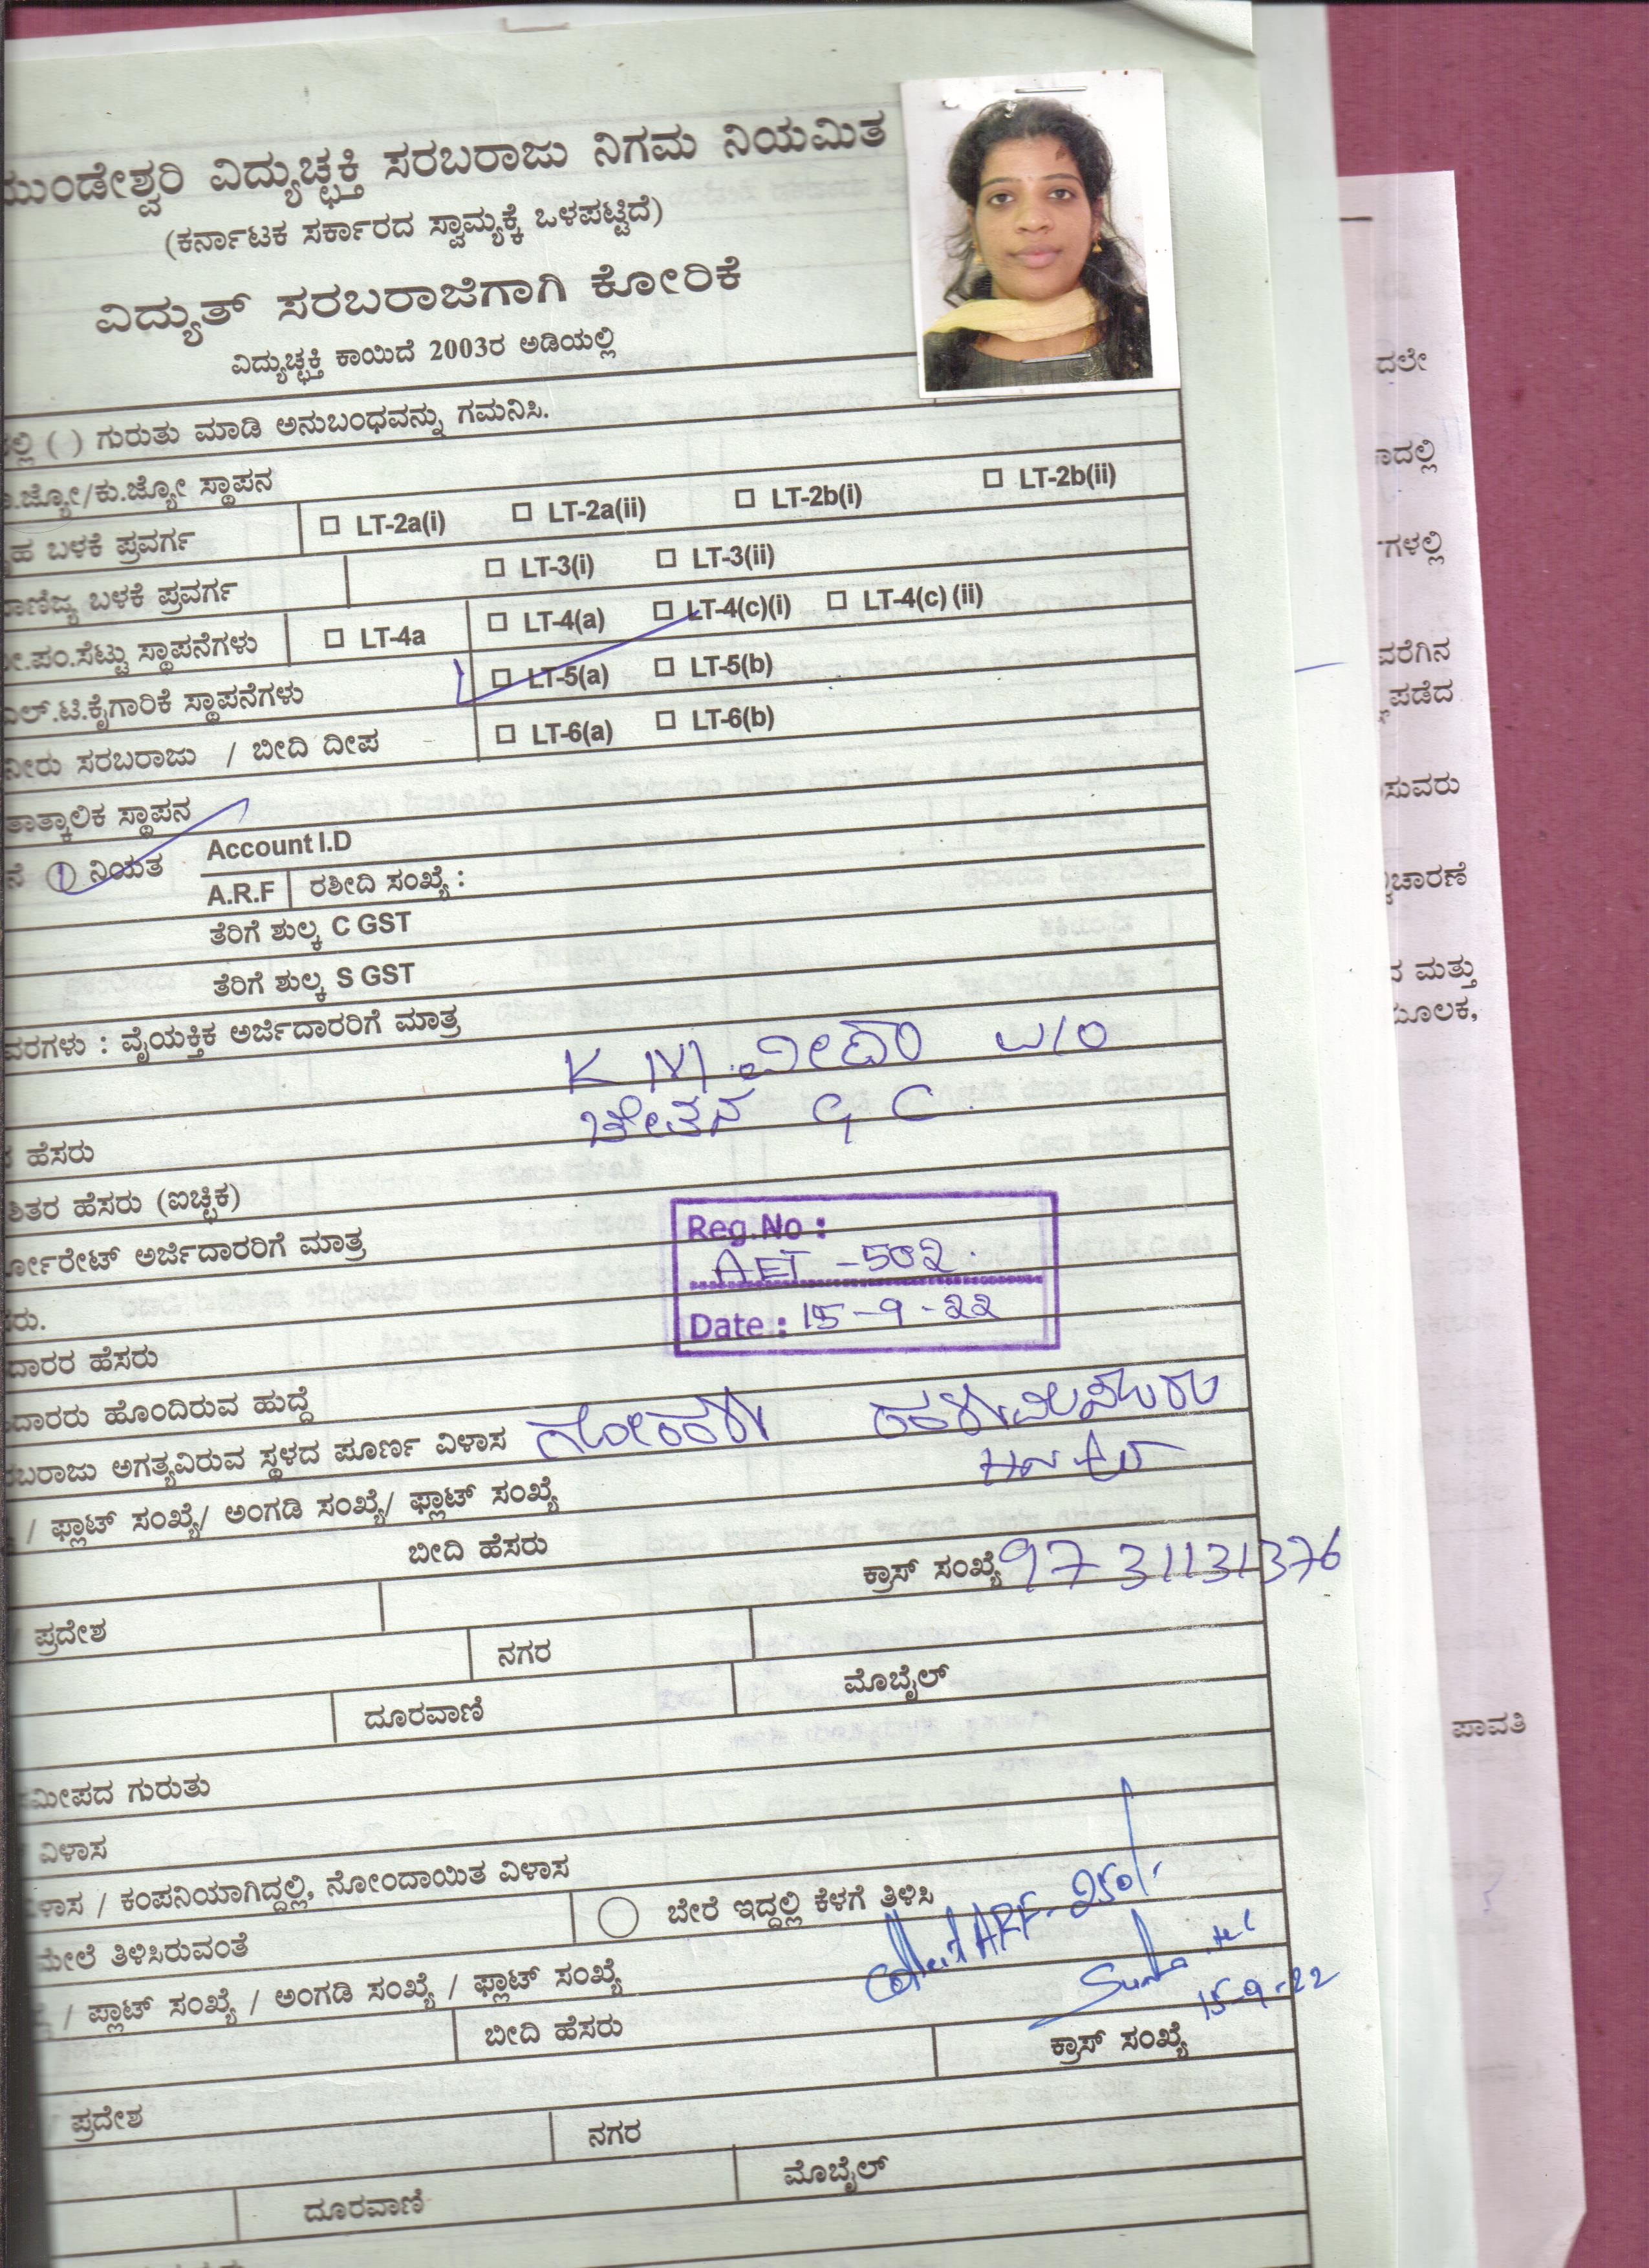 ಮುಂಡೇಶ್ವರಿ ವಿದ್ಯುಚ್ಛಕ್ತಿ ಸರಬರಾಜು ನಿಗಮ ನಿಯಮಿತ
(ಕರ್ನಾಟಕ ಸರ್ಕಾರದ ಸ್ವಾಮ್ಯಕ್ಕೆ ಒಳಪಟ್ಟಿದೆ)
ವಿದ್ಯುತ್ ಸರಬರಾಜಿಗಾಗಿ ಕೋರಿಕೆ
ವಿದ್ಯುಚ್ಛಕ್ತಿ ಕಾಯಿದೆ 2003ರ ಅಡಿಯಲ್ಲಿ
ಲ್ಲಿ ( ) ಗುರುತು ಮಾಡಿ ಅನುಬಂಧವನ್ನು ಗಮನಿಸಿ.
.ಜ್ಯೋ/ಕು.ಜ್ಯೋ ಸ್ಥಾಪನ
ಹ ಬಳಕೆ ಪ್ರವರ್ಗ LT-2a(i) LT-2a(ii) LT-2b(i) LT-2b(ii)
ಾಣಿಜ್ಯ ಬಳಕೆ ಪ್ರವರ್ಗ LT-3(i) LT-3(ii)
.ಪಂ.ಸೆಟ್ಟು ಸ್ಥಾಪನೆಗಳು LT-4a LT-4(a) LT-4(c)(i) LT-4(c) (ii)
ಎಲ್.ಟಿ.ಕೈಗಾರಿಕೆ ಸ್ಥಾಪನೆಗಳು LT-5(a) LT-5(b)
ನೀರು ಸರಬರಾಜು / ಬೀದಿ ದೀಪ LT-6(a) LT-6(b)
ತಾತ್ಕಾಲಿಕ ಸ್ಥಾಪನ
ನೆ ① ನಿಯತ Account I.D
A.R.F ರಶೀದಿ ಸಂಖ್ಯೆ :
ತೆರಿಗೆ ಶುಲ್ಕ C GST
ತೆರಿಗೆ ಶುಲ್ಕ S GST
ವರಗಳು : ವೈಯಕ್ತಿಕ ಅರ್ಜಿದಾರರಿಗೆ ಮಾತ್ರ
K M. ವೀಣಾ W/O
ಚೇತನ G C
ಹೆಸರು
ಶಿತರ ಹೆಸರು (ಐಚ್ಛಿಕ)
ರ್ಪೋರೇಟ್ ಅರ್ಜಿದಾರರಿಗೆ ಮಾತ್ರ
Reg.No :
AET - 502
Date : 15-9-22
ರು.
ದಾರರ ಹೆಸರು
ದಾರರು ಹೊಂದಿರುವ ಹುದ್ದೆ
ರಬರಾಜು ಅಗತ್ಯವಿರುವ ಸ್ಥಳದ ಪೂರ್ಣ ವಿಳಾಸ
/ ಫ್ಲಾಟ್ ಸಂಖ್ಯೆ/ ಅಂಗಡಿ ಸಂಖ್ಯೆ/ ಫ್ಲಾಟ್ ಸಂಖ್ಯೆ
ಬೀದಿ ಹೆಸರು
ಕ್ರಾಸ್ ಸಂಖ್ಯೆ 9731131376
ಪ್ರದೇಶ
ನಗರ
ದೂರವಾಣಿ ಮೊಬೈಲ್
ಮೀಪದ ಗುರುತು
ವಿಳಾಸ
ಳಾಸ / ಕಂಪನಿಯಾಗಿದ್ದಲ್ಲಿ, ನೋಂದಾಯಿತ ವಿಳಾಸ
ಮೇಲೆ ತಿಳಿಸಿರುವಂತೆ ಬೇರೆ ಇದ್ದಲ್ಲಿ ಕೆಳಗೆ ತಿಳಿಸಿ
Collect ARF - 250/-
15-9-22
/ ಫ್ಲಾಟ್ ಸಂಖ್ಯೆ / ಅಂಗಡಿ ಸಂಖ್ಯೆ / ಫ್ಲಾಟ್ ಸಂಖ್ಯೆ
ಬೀದಿ ಹೆಸರು
ಕ್ರಾಸ್ ಸಂಖ್ಯೆ
ಪ್ರದೇಶ
ನಗರ
ದೂರವಾಣಿ ಮೊಬೈಲ್
ದಲೇ
ಾದಲ್ಲಿ
ಗಳಲ್ಲಿ
ವರೆಗಿನ
ಪಡೆದ
ಸುವರು
ಚಾರಣೆ
ಮತ್ತು
ಮೂಲಕ,
ಪಾವತಿ